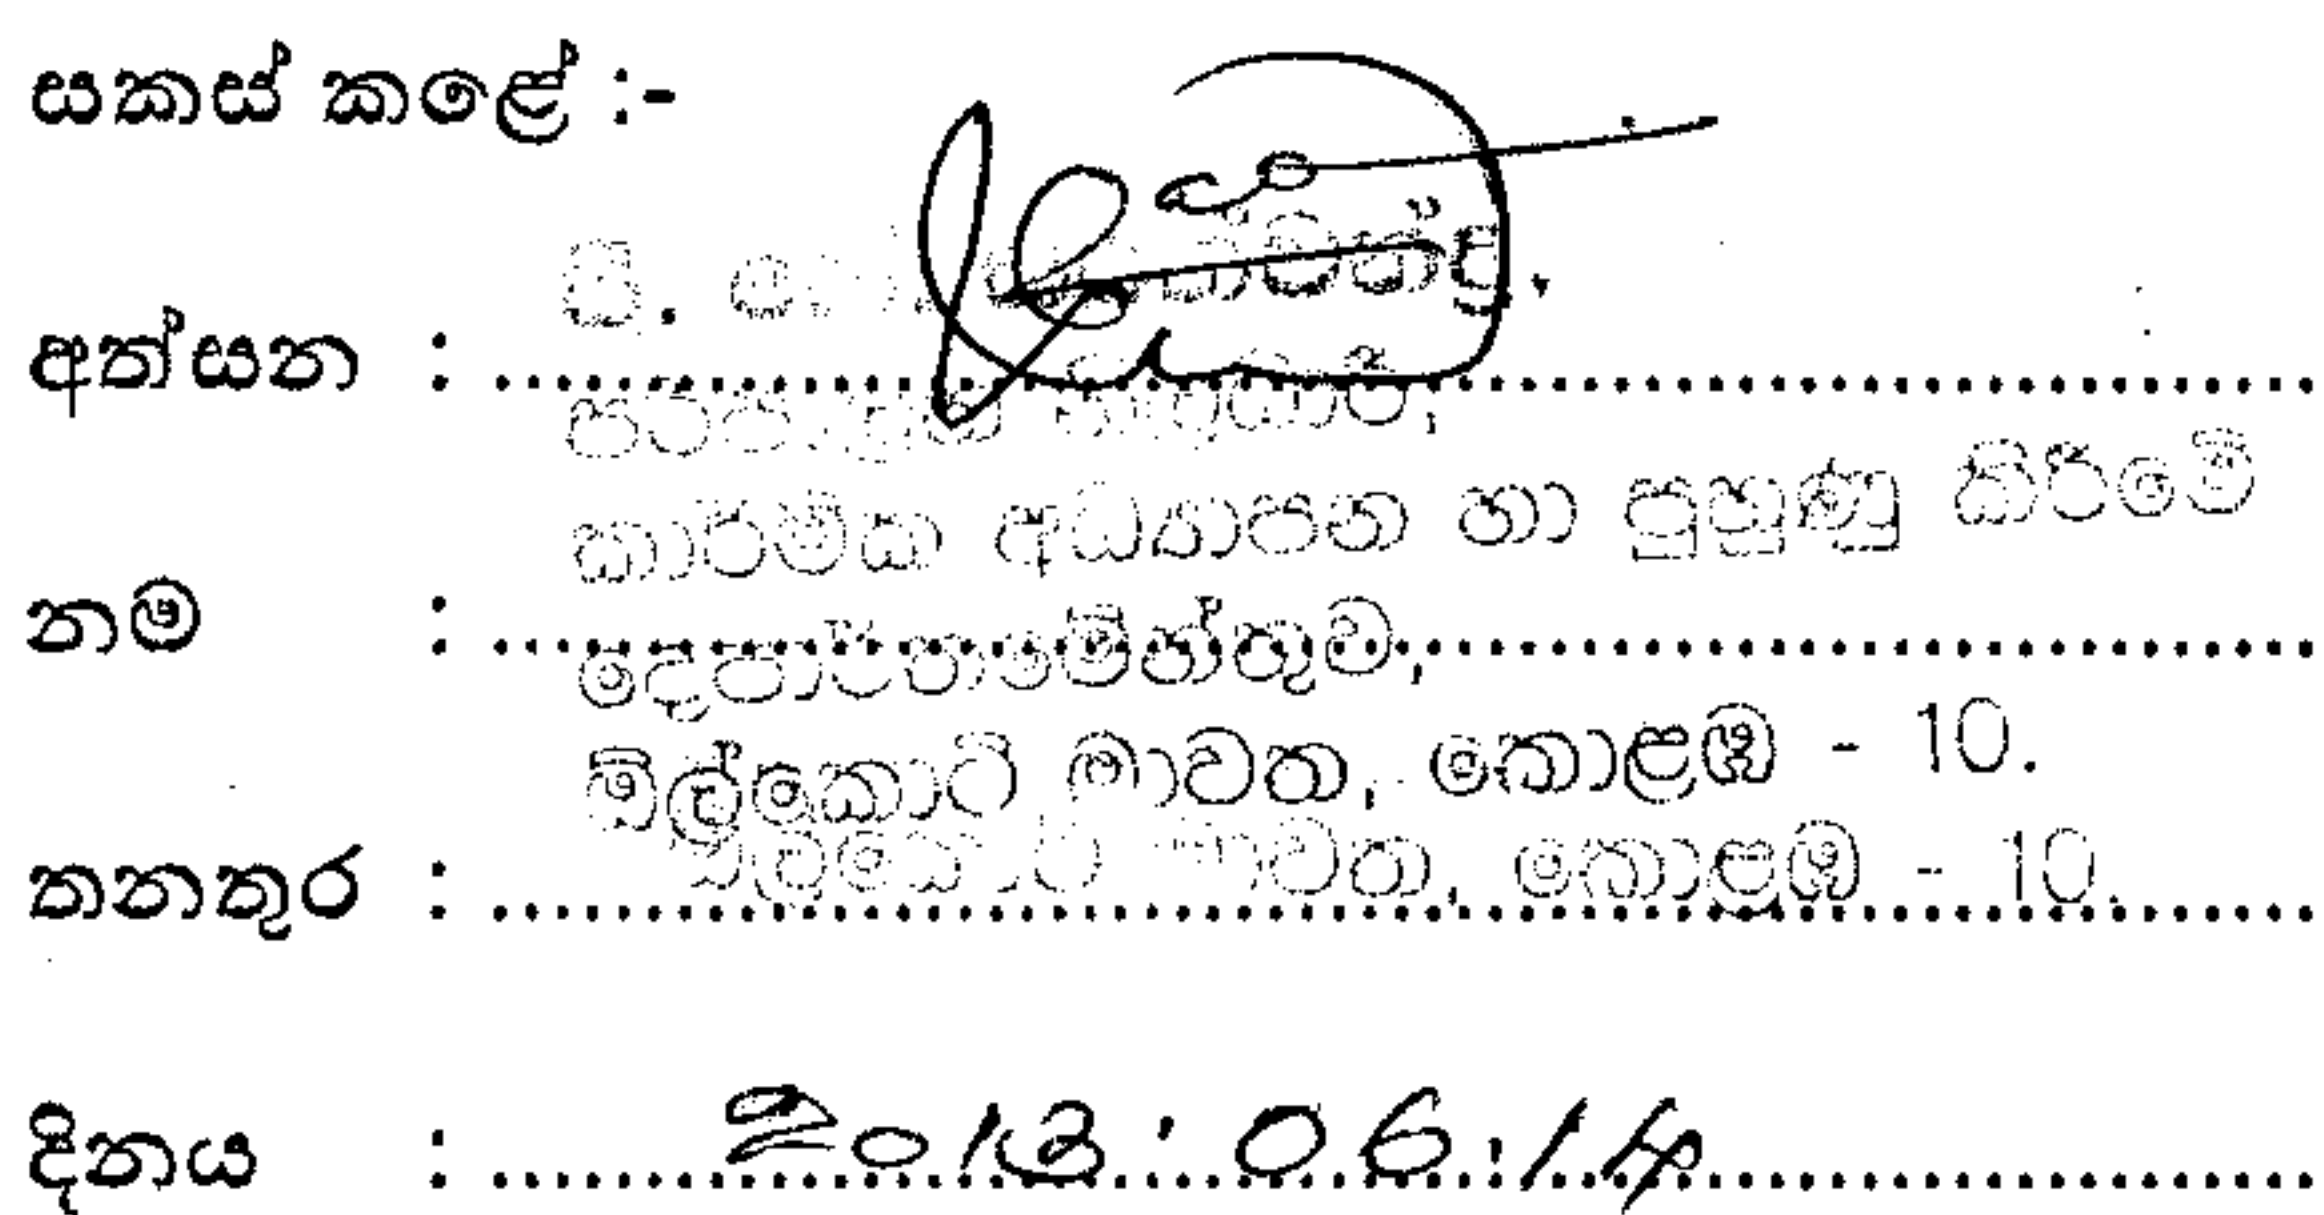 සකස් කළේ :-
අත්සන :
කාර්මික අධ්‍යාපන හා පුහුණු කිරීමේ
නම :
දෙපාර්තමේන්තුව,
ඕල්කොට් මාවත, කොළඹ - 10.
තනතුර : ඕල්කොට් මාවත, කොළඹ - 10.
දිනය : 2013.06.14